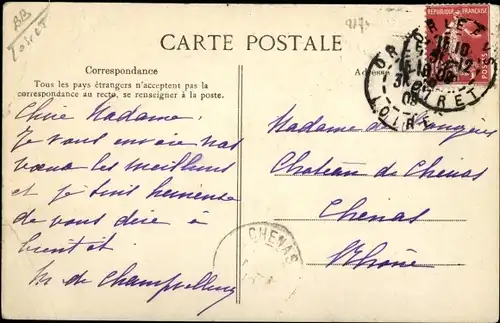 BB
Loiret
217
CARTE POSTALE
RÉPUBLIQUE FRANÇAISE
Correspondance
Tous les pays étrangers n'acceptent pas la
correspondance au recto, se renseigner à la poste.
Adresse
LOIRET
Chère Madame,
Je vous envoie nos
vœux les meilleurs
et je suis heureuse
de vous dire à
bientôt.
M. de
Madame de
Chateau de Chénas
Chénas
Rhône
CHENAS